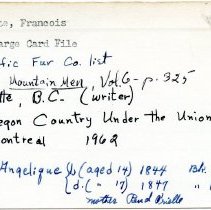 Francois
arge Card File
fic Fur Co. list
Mountain Men, Vol. 6 - p. 325
tte, B.C. (writer)
egon Country Under the Union
ontreal 1962
Angelique (aged 14) 1844
d. ( " 17) 1847 "
mother